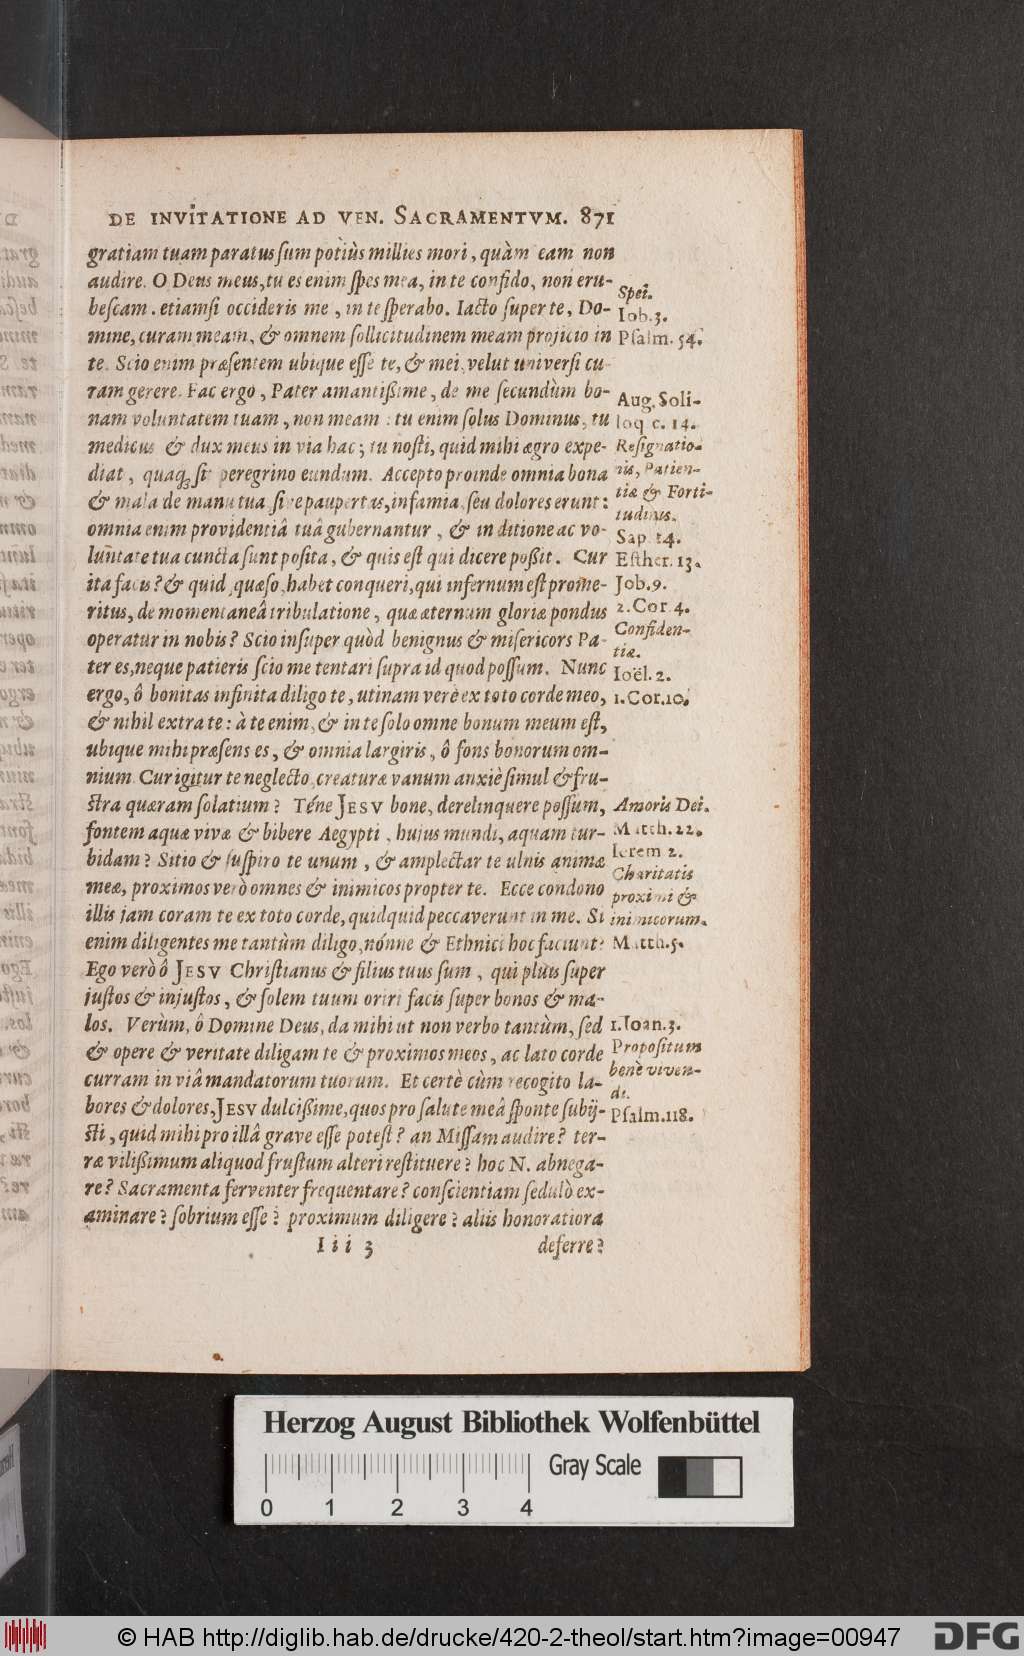 DE INVITATIONE AD VEN. SACRAMENTVM. 871
gratiam tuam paratus ſum potiùs millies mori, quàm eam non
audire. O Deus meus, tu es enim ſpes mea, in te confido, non eru-
beſcam. etiamſi occideris me, in te ſperabo. Iacto ſuper te, Do-
mine, curam meam, & omnem ſollicitudinem meam projicio in
te. Scio enim præſentem ubique eſſe te, & mei, velut univerſi cu-
ram gerere. Fac ergo, Pater amantißime, de me ſecundùm bo-
nam voluntatem tuam, non meam: tu enim ſolus Dominus, tu
medicus & dux meus in via hac; tu noſti, quid mihi ægro expe-
diat, quaq; ſit peregrino eundum. Accepto proinde omnia bona
& mala de manu tua, ſive paupertas, infamia, ſeu dolores erunt:
omnia enim providentiâ tuâ gubernantur, & in ditione ac vo-
luntate tua cuncta ſunt poſita, & quis eſt qui dicere poßit. Cur
ita facis? & quid, quæſo, habet conqueri, qui infernum eſt prome-
ritus, de momentaneâ tribulatione, quæ æternum gloriæ pondus
operatur in nobis? Scio inſuper quòd benignus & miſericors Pa-
ter es, neque patieris ſcio me tentari ſupra id quod poſſum. Nunc
ergo, ô bonitas infinita diligo te, utinam verè ex toto corde meo,
& nihil extra te: à te enim, & in te ſolo omne bonum meum eſt,
ubique mihi præſens es, & omnia largiris, ô fons bonorum om-
nium. Cur igitur te neglecto, creaturæ vanum anxiè ſimul & fru-
ſtra quæram ſolatium? Téne JESV bone, derelinquere poſſum,
fontem aquæ vivæ & bibere Aegypti, hujus mundi, aquam tur-
bidam? Sitio & ſuſpiro te unum, & amplectar te ulnis animæ
meæ, proximos verò omnes & inimicos propter te. Ecce condono
illis jam coram te ex toto corde, quidquid peccaverunt in me. Si
enim diligentes me tantùm diligo, nónne & Ethnici hoc faciunt?
Ego verò ô JESV Chriſtianus & filius tuus ſum, qui pluis ſuper
juſtos & injuſtos, & ſolem tuum oriri facis ſuper bonos & ma-
los. Verùm, ô Domine Deus, da mihi ut non verbo tantùm, ſed
& opere & veritate diligam te & proximos meos, ac lato corde
curram in viâ mandatorum tuorum. Et certè cùm recogito la-
bores & dolores, JESV dulcißime, quos pro ſalute meâ ſponte ſubij-
ſti, quid mihi pro illâ grave eſſe poteſt? an Miſſam audire? ter-
ræ vilißimum aliquod fruſtum alteri reſtituere? hoc N. abnega-
re? Sacramenta ferventer frequentare? conſcientiam ſedulò ex-
aminare? ſobrium eſſe? proximum diligere? aliis honoratiora
Iii 3 deferre?
Spei.
Iob.3.
Pſalm.54.
Aug. Soli-
loq. c. 14.
Reſignatio-
nis, Patien-
tiæ & Forti-
tudinis.
Sap. 14.
Eſther. 13.
Job.9.
2.Cor. 4.
Confiden-
tiæ.
Ioël. 2.
1.Cor.10.
Amoris Dei.
Matth.22.
Ierem 2.
Charitatis
proximi &
inimicorum.
Matth.5.
1.Ioan.3.
Propoſitum
benè viven-
di.
Pſalm.118.
Herzog August Bibliothek Wolfenbüttel
Gray Scale
0 1 2 3 4
© HAB http://diglib.hab.de/drucke/420-2-theol/start.htm?image=00947
DFG